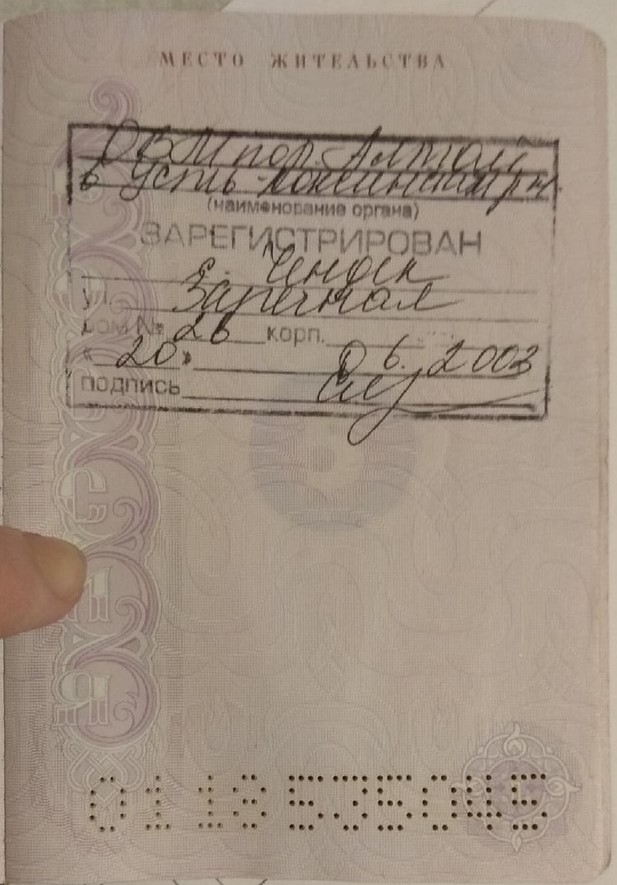 МЕСТО ЖИТЕЛЬСТВА
ОВМ по р. Алтай
в Усть-Коксинском р-н
(наименование органа)
ЗАРЕГИСТРИРОВАН
с. Чендек
ул. Заречная
дом № 26 корп.
« 20 » 06. 2003
подпись
РОССИЯ
0113 535045